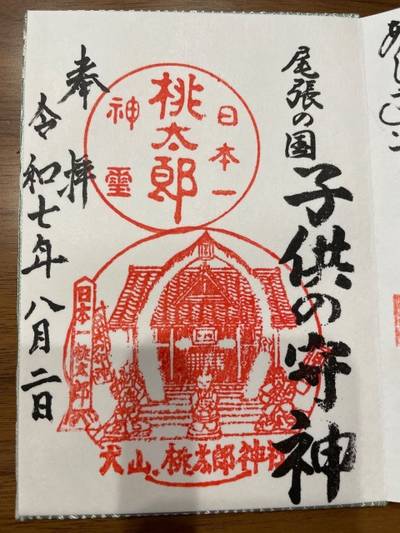 尾張の国
子供の守神
日本一
桃太郎
神靈
日本一桃太郎
犬山、桃太郎神社
奉拝
令和七年八月二日